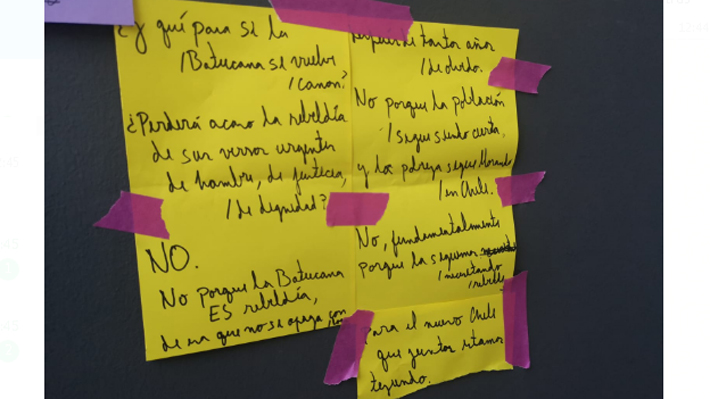 ¿y qué pasa si la
/Batucana se vuelve
/canon?
¿Perderá acaso la rebeldía
de sus versos urgentes
de hambre, de justicia,
/de dignidad?
NO.
No porque la Batucana
ES rebeldía,
de esa que no se apaga con
los
después de tantos años
/de olvido.
No porque la población
/sigue siendo cierta,
y los pobres sigue llorando
/en Chile.
No, fundamentalmente
porque la seguimos
/necesitando
/rebelde
Para el nuevo Chile
que juntos estamos
tejiendo.